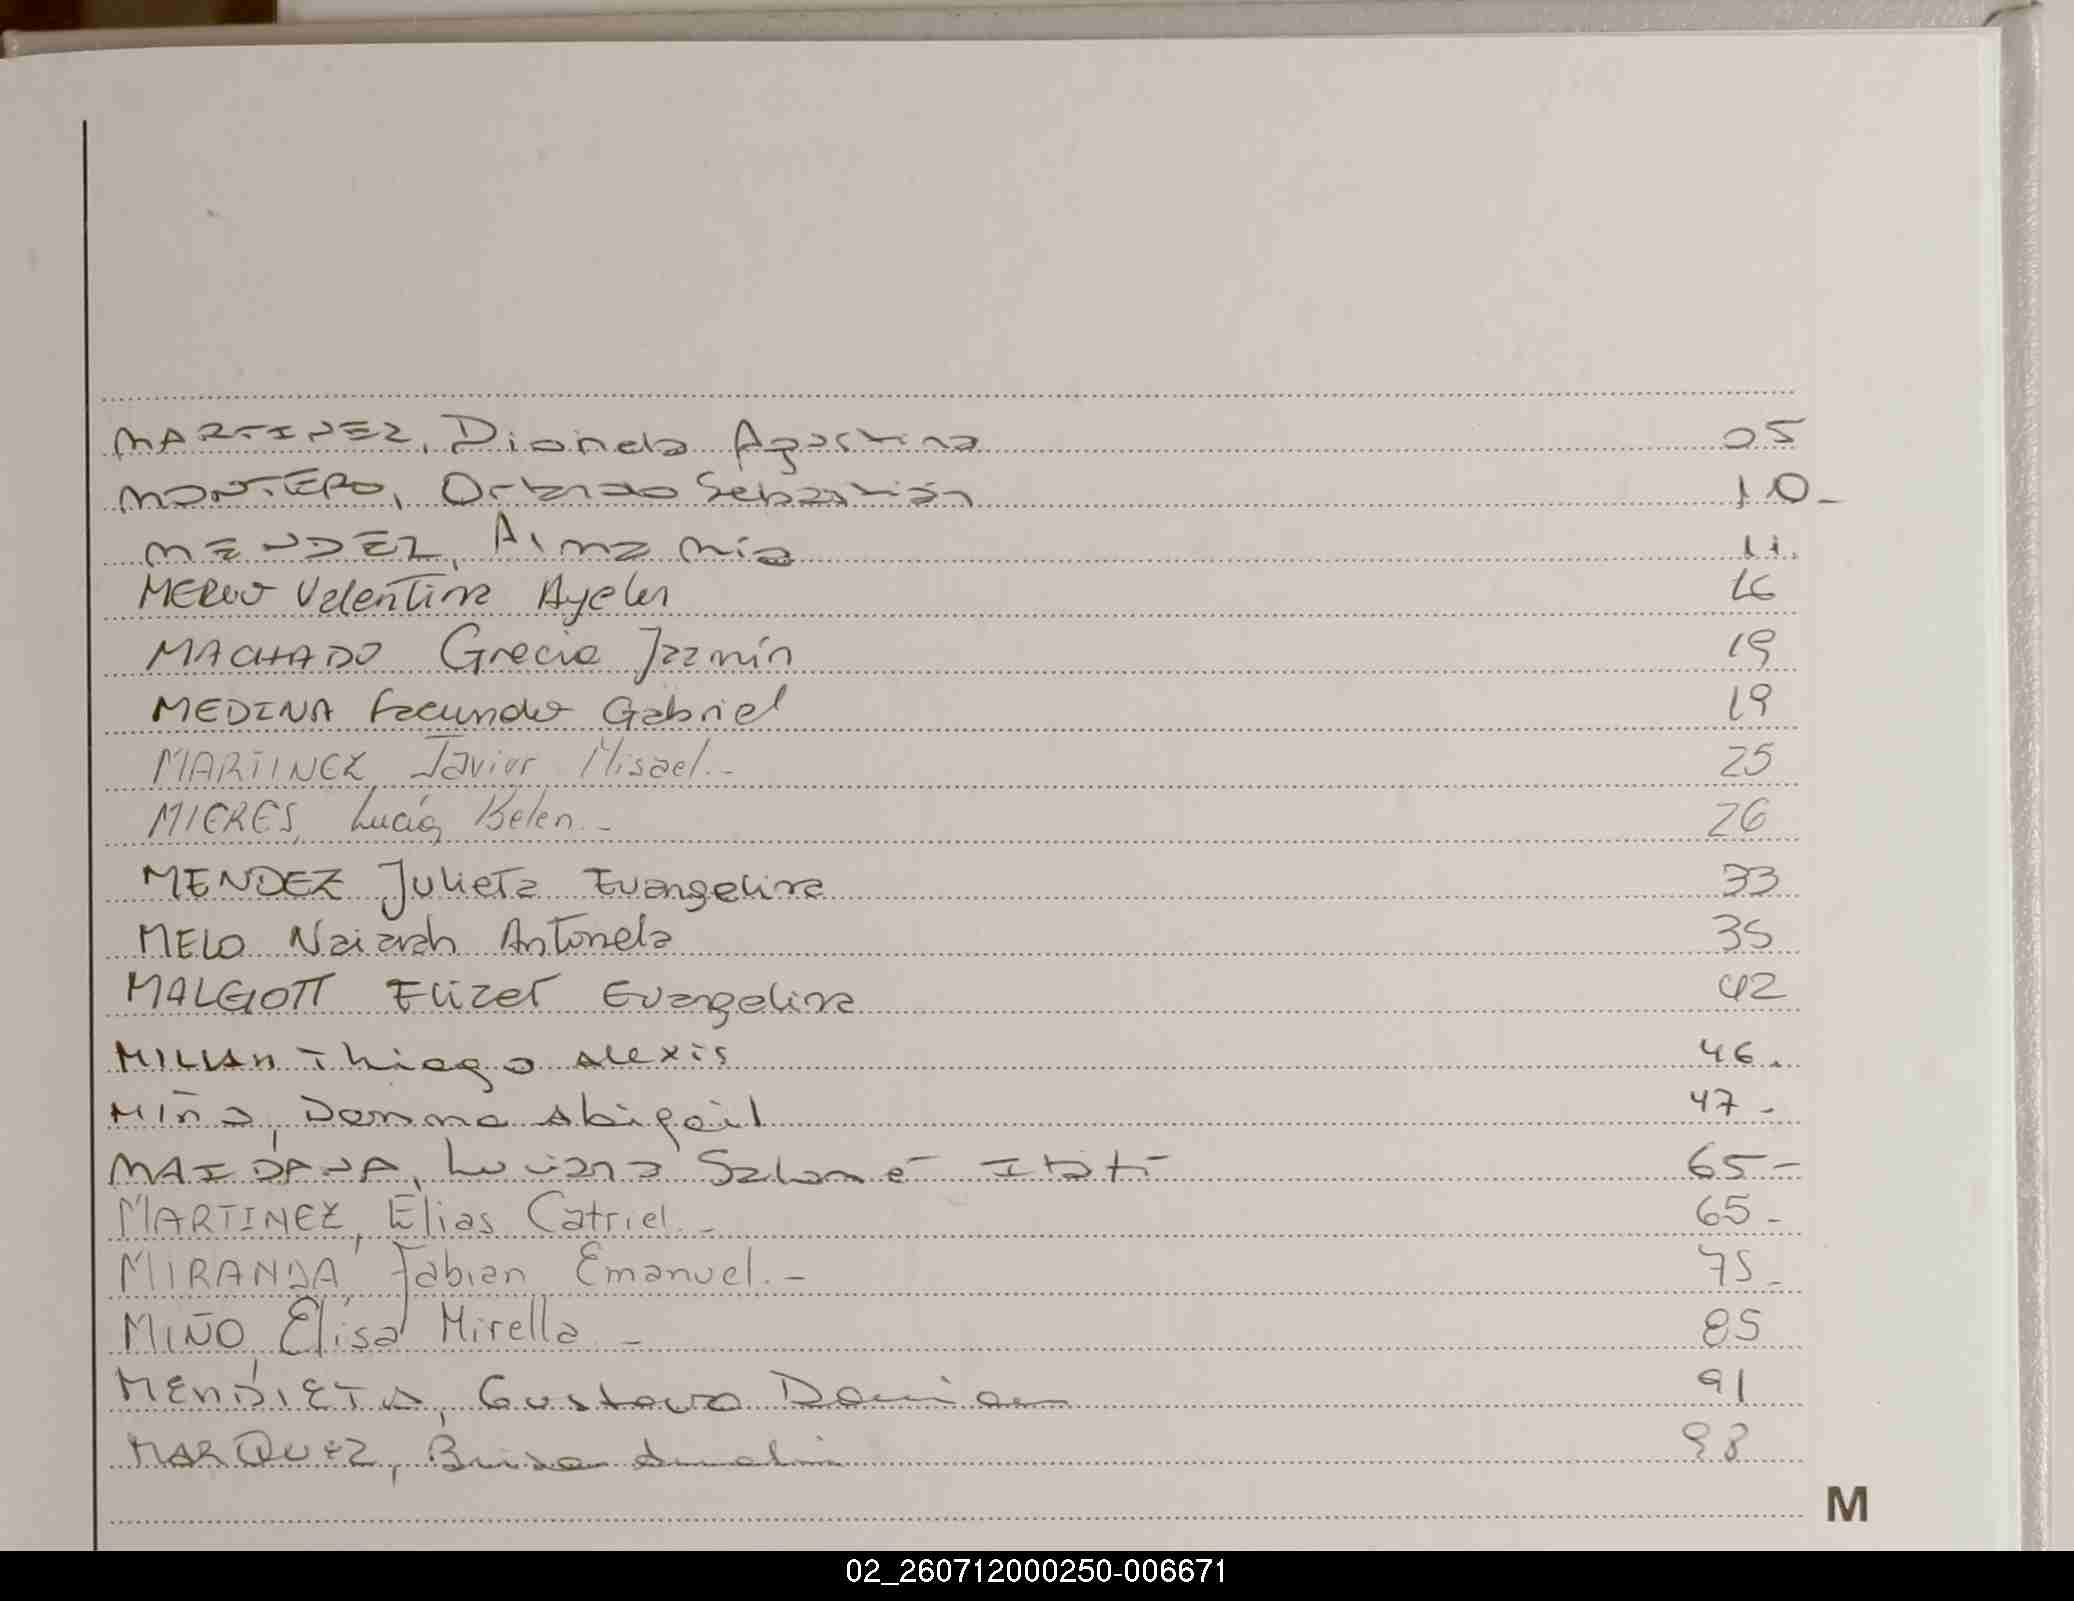 MARTINEZ, Dionela Agostina 05
MONTERO, Orlando Sebastián 10-
MENDEZ, Alma Mía 11.
MERLO Valentina Ayelen 16
MACHADO Grecia Jazmín 19
MEDINA Facundo Gabriel 19
MARTINEZ, Javier Misael.- 25
MIERES, Lucía Belen.- 26
MENDEZ Julieta Evangelina 33
MELO Naiarah Antonela 35
MALGOTT Elizet Evangelina 42
MILLAN Thiago Alexis 46.
Miño, Donna Abigail 47-
MAIDANA, Luciana Salomé Itatí 65-
MARTINEZ, Elias Catriel.- 65-
MIRANDA, Fabian Emanuel.- 75-
MIÑO, Elisa Mirella - 85
MENDIETA, Gustavo Damian 91
MARQUEZ, Brisa 98
M
02_260712000250-006671